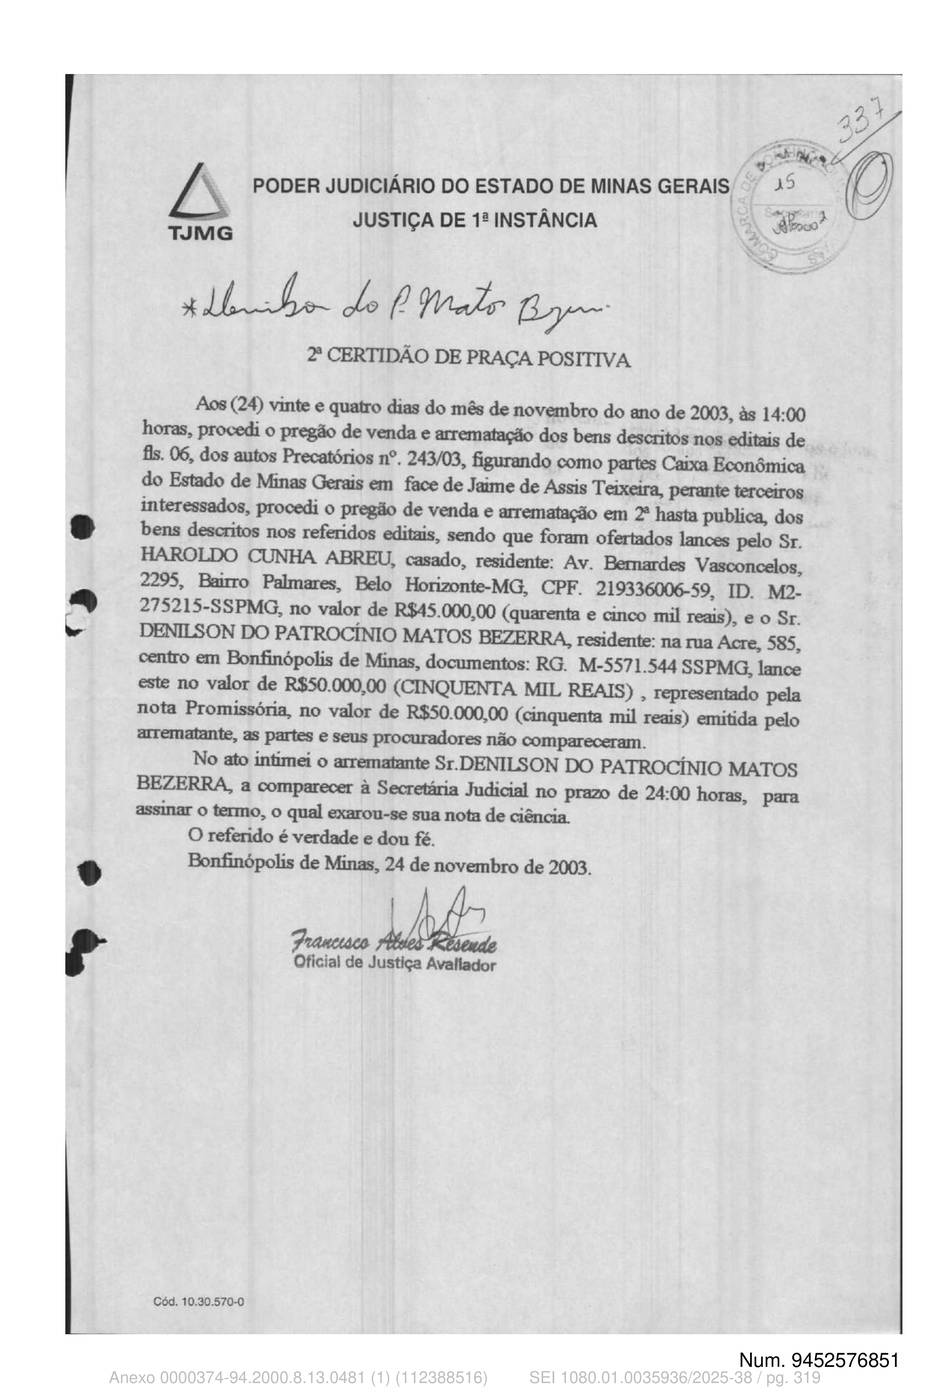 337
COMARCA DE BONFINÓPOLIS
15
TJMG
PODER JUDICIÁRIO DO ESTADO DE MINAS GERAIS
JUSTIÇA DE 1ª INSTÂNCIA
*Denilson do P. Matos Bezerra
2ª CERTIDÃO DE PRAÇA POSITIVA
Aos (24) vinte e quatro dias do mês de novembro do ano de 2003, às 14:00
horas, procedi o pregão de venda e arrematação dos bens descritos nos editais de
fls. 06, dos autos Precatórios nº. 243/03, figurando como partes Caixa Econômica
do Estado de Minas Gerais em face de Jaime de Assis Teixeira, perante terceiros
interessados, procedi o pregão de venda e arrematação em 2ª hasta publica, dos
bens descritos nos referidos editais, sendo que foram ofertados lances pelo Sr.
HAROLDO CUNHA ABREU, casado, residente: Av. Bernardes Vasconcelos,
2295, Bairro Palmares, Belo Horizonte-MG, CPF. 219336006-59, ID. M2-
275215-SSPMG, no valor de R$45.000,00 (quarenta e cinco mil reais), e o Sr.
DENILSON DO PATROCÍNIO MATOS BEZERRA, residente: na rua Acre, 585,
centro em Bonfinópolis de Minas, documentos: RG. M-5571.544 SSPMG, lance
este no valor de R$50.000,00 (CINQUENTA MIL REAIS) , representado pela
nota Promissória, no valor de R$50.000,00 (cinquenta mil reais) emitida pelo
arrematante, as partes e seus procuradores não compareceram.
No ato intimei o arrematante Sr.DENILSON DO PATROCÍNIO MATOS
BEZERRA, a comparecer à Secretária Judicial no prazo de 24:00 horas, para
assinar o termo, o qual exarou-se sua nota de ciência.
O referido é verdade e dou fé.
Bonfinópolis de Minas, 24 de novembro de 2003.
Francisco Alves Resende
Oficial de Justiça Avaliador
Cód. 10.30.570-0
Num. 9452576851
Anexo 0000374-94.2000.8.13.0481 (1) (112388516) SEI 1080.01.0035936/2025-38 / pg. 319